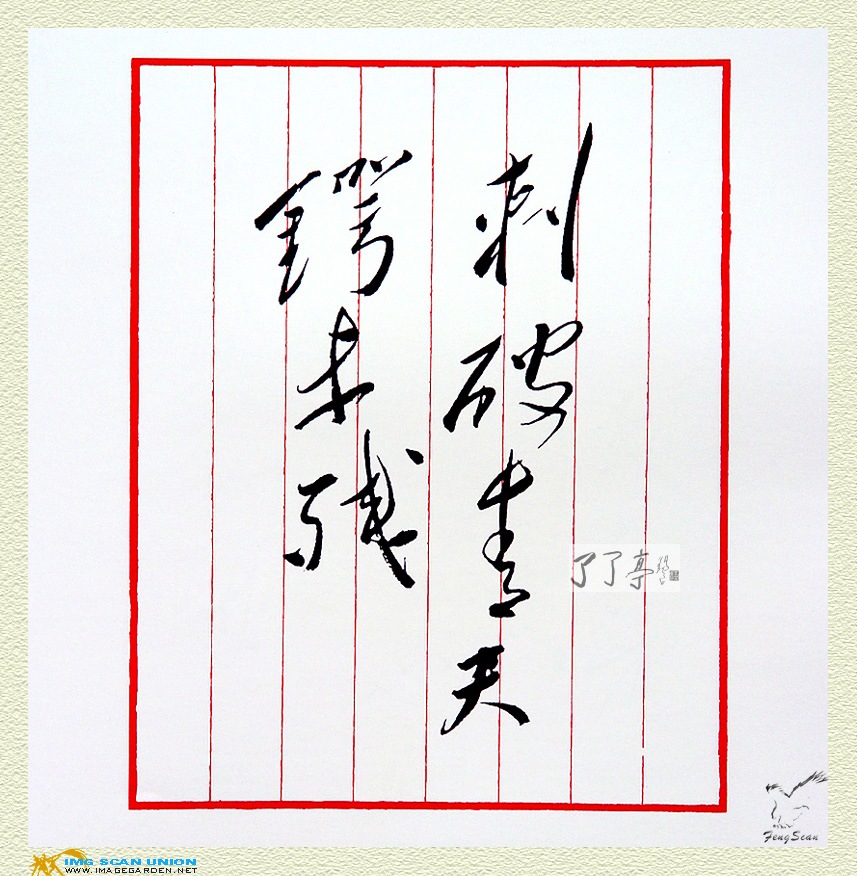 刺破青天
锷未残
了了亭
FengScan
IMG SCAN UNION
WWW.IMAGEGARDEN.NET